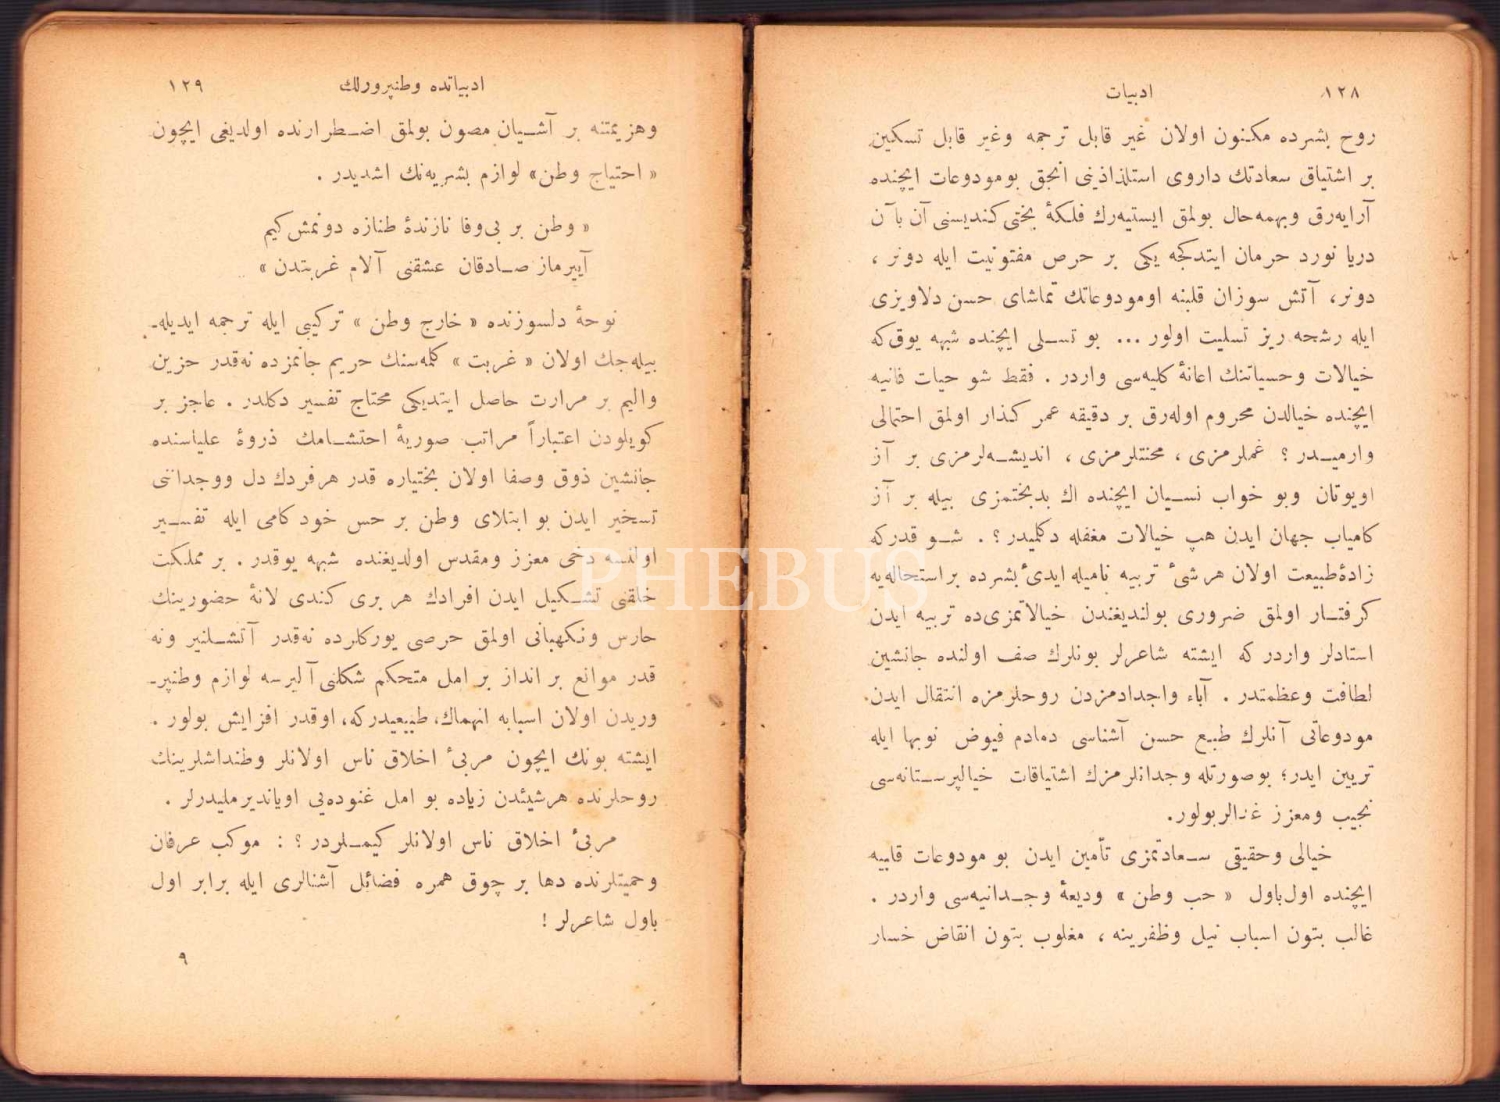 ١٢٨
ادبيات
روح بشرده مكنون اولان غير قابل ترجمه وغير قابل تسكين
بر اشتياق سعادتك داروى استلذاذينى انجق بومودوعات ايچنده
آرايه‌رق وبهمه‌حال بولمق ايستيه‌رك فلكۀ بختى كنديسنى آن بآن
دريا نورد حرمان ايتدكجه يكى بر حرص مفتونيت ايله دونر ،
دونر، آتش سوزان قلبنه اومودوعاتك تماشاى حسن دلاويزى
ايله رشحه ريز تسليت اولور ... بو تسلى ايچنده شبهه يوق‌كه
خيالات وحسياتنك اعانۀ كليه‌سى واردر . فقط شو حيات فانيه
ايچنده خيالدن محروم اوله‌رق بر دقيقه عمر كذار اولمق احتمالى
وارميدر ؟ غملرمزى ، محنتلرمزى ، انديشه‌لرمزى بر آز
اويوتان وبو خواب نسيان ايچنده اك بدبختمزى بيله بر آز
كامياب جهان ايدن هپ خيالات مغفله دكلميدر ؟ . شو قدركه
زادۀ طبيعت اولان هرشئ تربيه ناميله ايدئ بشرده بر استحاله‌يه
كرفتار اولمق ضرورى بولنديغندن خيالاتمزى‌ده تربيه ايدن
استادلر واردر كه ايشته شاعرلر بونلرك صف اولنده جانشين
لطافت وعظمتدر . آباء واجدادمزدن روحلرمزه انتقال ايدن
مودوعاتى آنلرك طبع حسن آشناسى دمادم فيوض نوبها ايله
تزيين ايدر؛ بوصورتله وجدانلرمزك اشتياقات خيالپرستانه‌سى
نجيب ومعزز غدالربولور.
خيالى وحقيقى سعادتمزى تأمين ايدن بو مودوعات قلبيه
ايچنده اول‌باول « حب وطن » وديعۀ وجدانيه‌سى واردر .
غالب بتون اسباب نيل وظفرينه ، مغلوب بتون انقاض خسار
ادبياتده وطنپرورلك
١٢٩
وهزيمتنه بر آشيان مصون بولمق اضطرارنده اولديغى ايچون
« احتياج وطن» لوازم بشريه‌نك اشديدر .
« وطن بر بى‌وفا نازندۀ طنازه دونمش‌كيم
آييرماز صادقان عشقنى آلام غربتدن »
نوحۀ دلسوزنده « خارج وطن » تركيبى ايله ترجمه ايديله‌ـ
بيله‌جك اولان « غربت » كلمه‌سنك حريم جانمزده نه‌قدر حزين
واليم بر مرارت حاصل ايتديكى محتاج تفسير دكلدر . عاجز بر
كويلودن اعتباراً مراتب صوريۀ احتشامك ذروۀ علياسنده
جانشين ذوق وصفا اولان بختياره قدر هرفردك دل ووجداننى
تسخير ايدن بو ابتلاى وطن بر حس خودكامى ايله تفسير
اولنسه دخى معزز ومقدس اولديغنده شبهه يوقدر . بر مملكت
خلقنى تشكيل ايدن افرادك هر برى كندى لانۀ حضورينك
حارس ونكهبانى اولمق حرصى يوركلرده نه‌قدر آتشلنير ونه
قدر موانع بر انداز بر امل متحكم شكلنى آليرسه لوازم وطنپر‌ـ
وريدن اولان اسبابه انهماك، طبيعيدركه، اوقدر افزايش بولور .
ايشته بونك ايچون مربئ اخلاق ناس اولانلر وطنداشلرينك
روحلرنده هرشيئدن زياده بو امل غنوده‌يى اوياندير‌مليدرلر .
مربئ اخلاق ناس اولانلر كيملردر ؟ : موكب عرفان
وحميتلرنده دها بر چوق همره فضائل آشنالرى ايله برابر اول
باول شاعرلر !
٩
PHEBUS